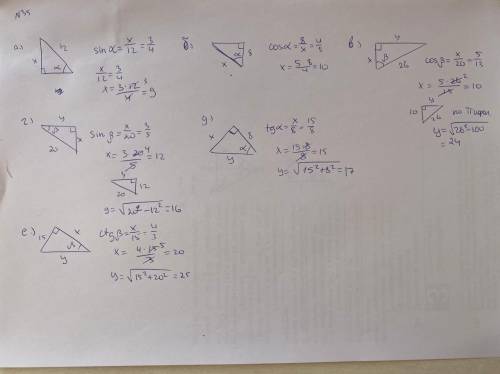 №35
а)
12
x
α
sin α = x/12 = 3/4
x/12 = 3/4
x = 3·12/4 = 9
б)
8
α
x
cos α = 8/x = 4/5
x = 5·8/4 = 10
в)
y
x
β
26
cos β = x/26 = 5/13
x = 5·26/13 = 10
y
10
26
по Пифаг
y = √26²-100
= 24
г)
y
β
x
20
sin β = x/20 = 3/5
x = 3·20/5 = 12
y
20
12
y = √20²-12² = 16
д)
x
8
α
y
tg α = x/8 = 15/8
x = 15·8/8 = 15
y = √15²+8² = 17
е)
15
x
β
y
ctg β = x/15 = 4/3
x = 4·15/3 = 20
y = √15²+20² = 25